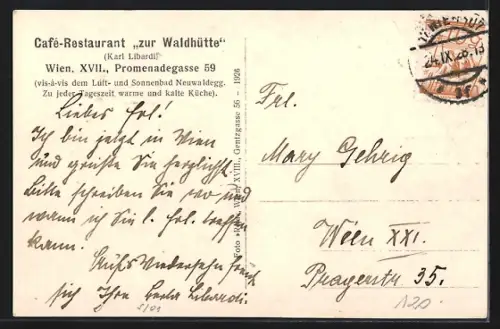 Café-Restaurant „zur Waldhütte“
(Karl Libardi)
Wien, XVII., Promenadegasse 59
(vis-à-vis dem Luft- und Sonnenbad Neuwaldegg.
Zu jeder Tageszeit warme und kalte Küche).
Liebes Frl.!
Ich bin jetzt in Wien
und grüße Sie herzlichst.
Bitte schreiben Sie wo und
wann ich Sie l. Frl. treffen
kann.
Aufs Wiedersehn freut
sich Ihre Berta Libardi.
Wien XVIII., Gentzgasse 56 — 1926
24.IX.26
Frl.
Mary Gehrig
Wien XXI.
Pragerstr. 35.
120